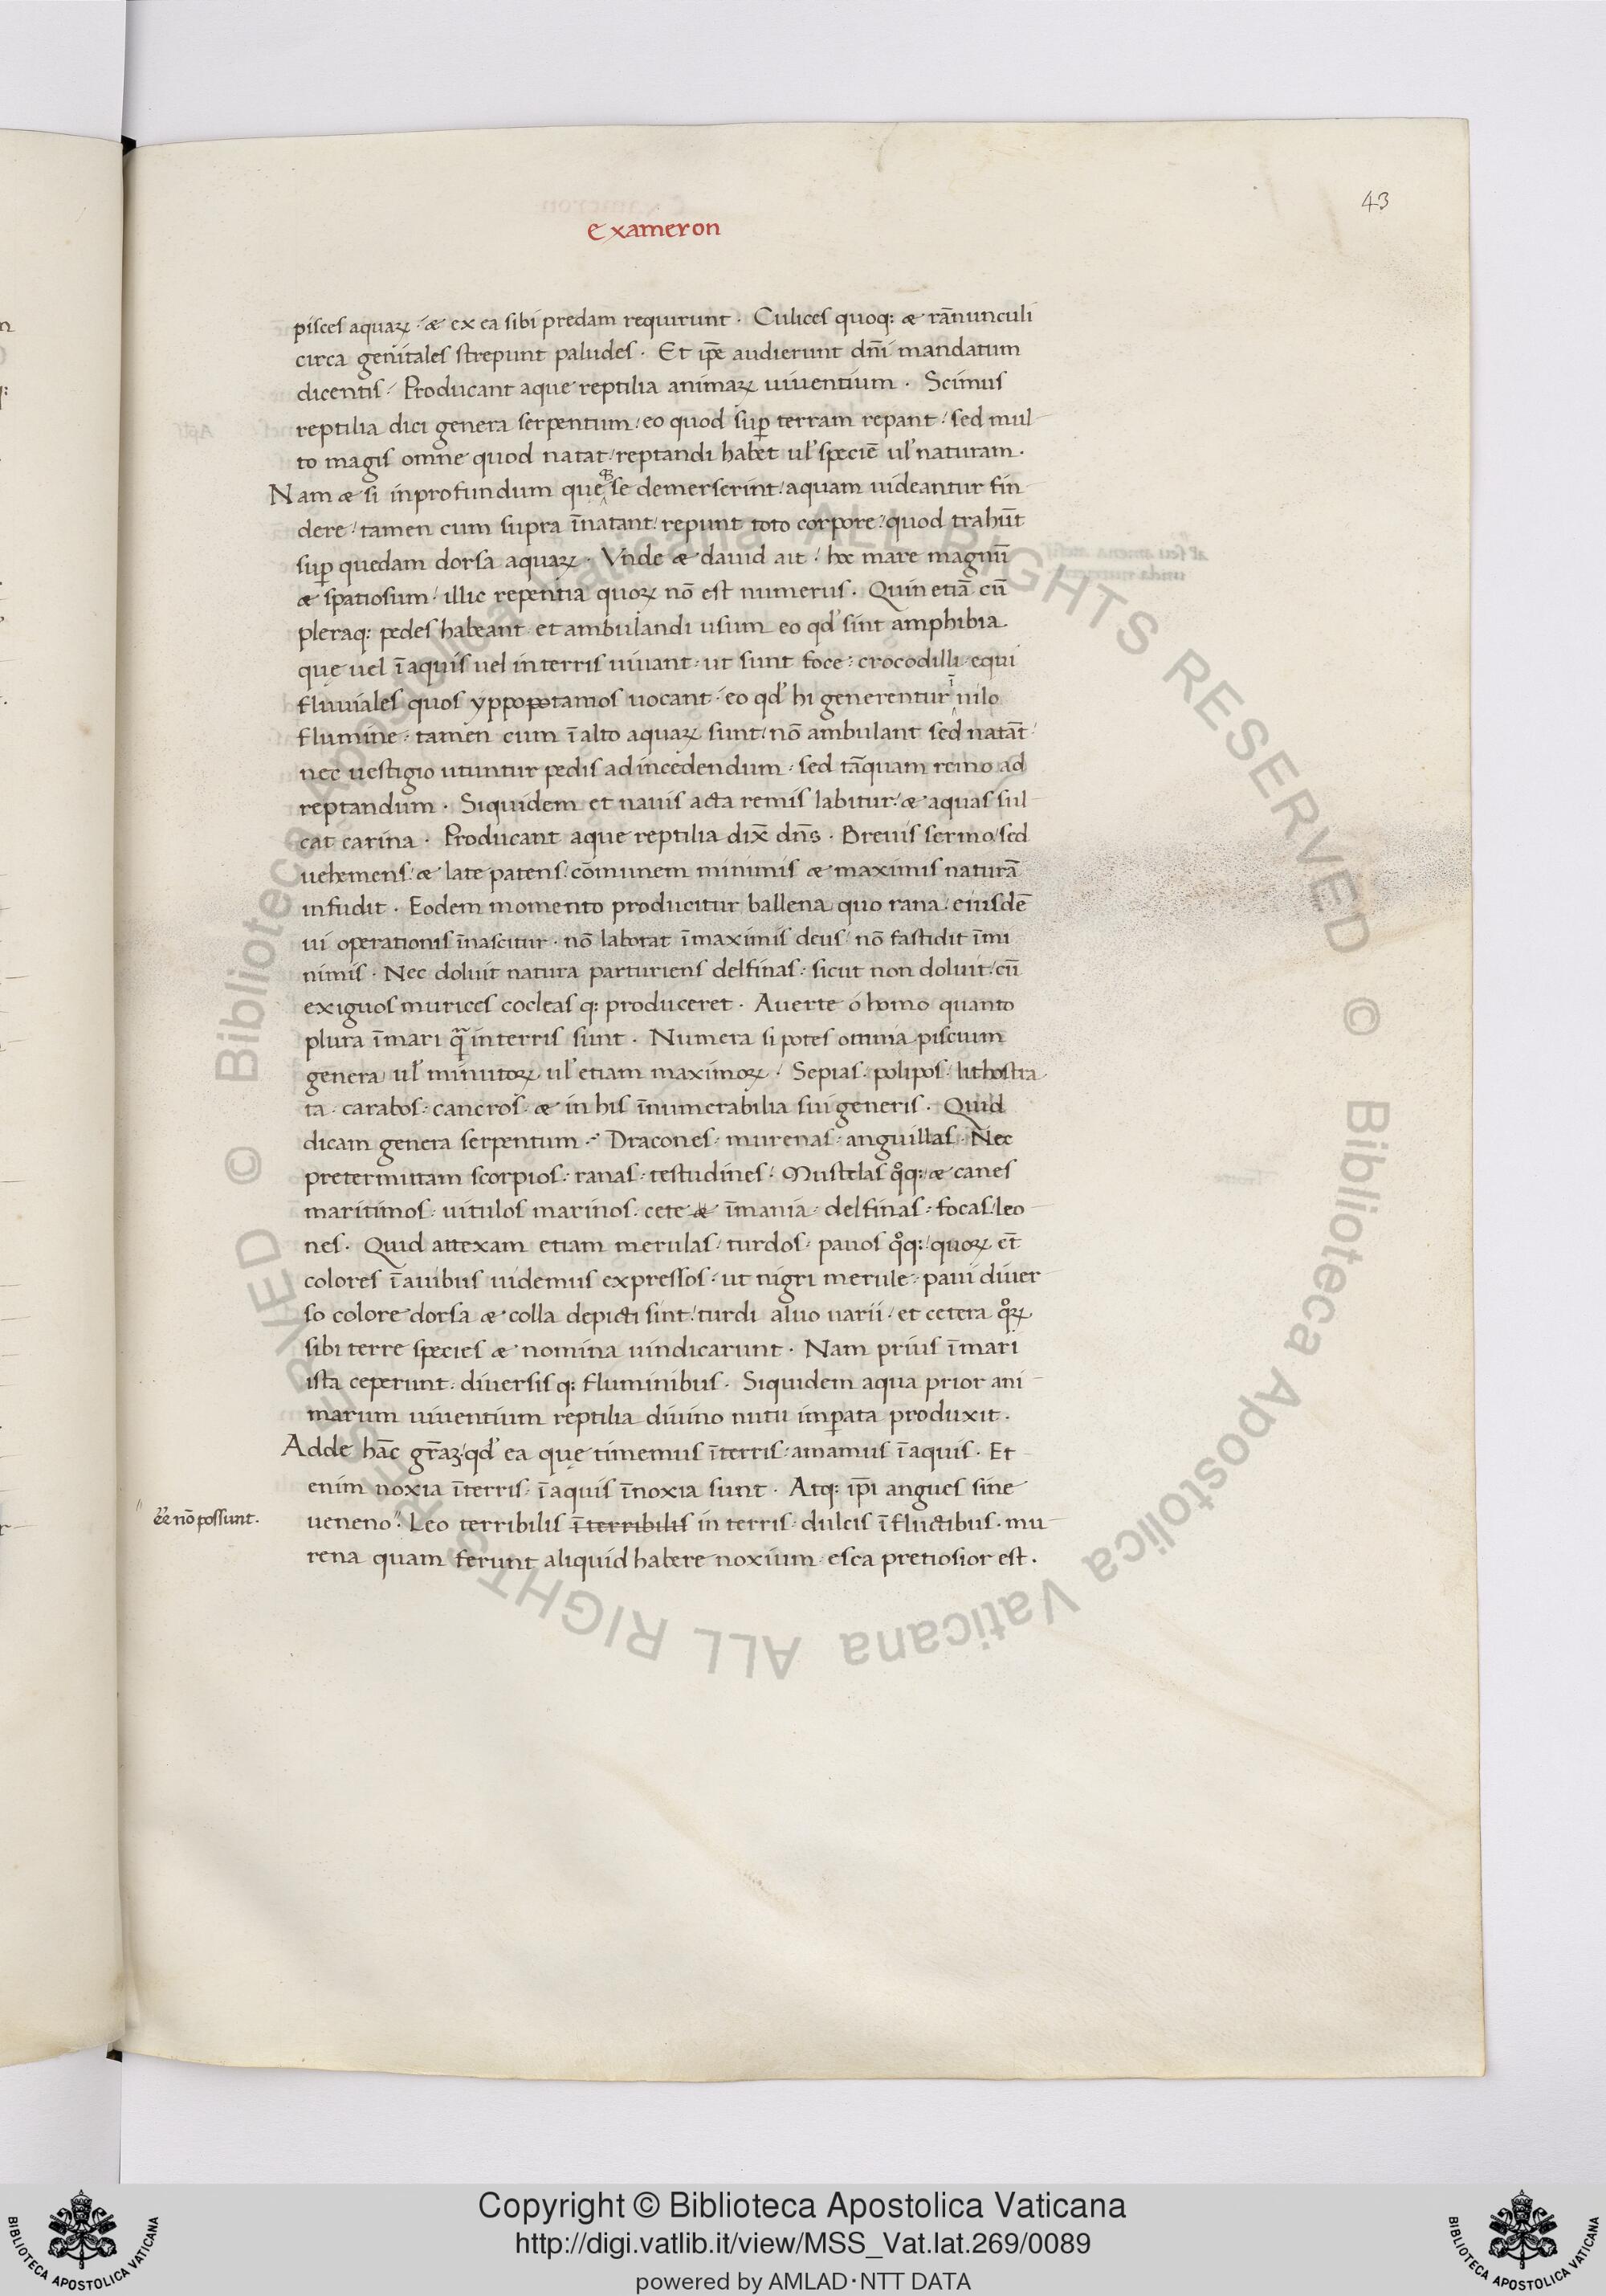 43
Exameron
pisces aquaꝝ · & ex ea sibi predam requirunt · Culices quoq: & rānunculi
circa genitales strepunt paludes · Et ip̄e audierunt dn̄i mandatum
dicentis · Producant aque reptilia animaꝝ uiuentium · Scimus
reptilia dici genera serpentum / eo quod suꝑ terram repant / sed mul-
to magis omne quod natat / reptandi habet ul' speciē ul' naturam ·
Nam & si inprofundum quęse demerserint / aquam uideantur fin-
dere / tamen cum supra īnatant / repunt toto corpore / quod trahūt
suꝑ quedam dorsa aquaꝝ · Vnde & dauid ait / hoc mare magnū
& spatiosum / illic repentia quoꝝ nō est numerus · Quin etiā cū
pleraq: pedes habeant et ambulandi usum eo qd' sint amphibia ·
quę uel ī aquis uel in terris uiuant · ut sunt foce · crocodilli · equi
fluuiales quos yppopotamos uocant · eo qd' hi generentur ī nilo
flumine · tamen cum ī alto aquaꝝ sunt / nō ambulant sed natāt
nec uestigio utuntur pedis ad incedendum · sed tāquam remo ad
reptandum · Siquidem et nauis acta remis labitur / & aquas sul-
cat carina · Producant aque reptilia dix̄ dn̄s · Breuis sermo / sed
uehemens / & late patens / cōmunem minimis & maximis naturā
infudit · Eodem momento producitur ballena quo rana / eiusdē
ui operationis īnascitur · nō laborat ī maximis deus / nō fastidit ī mi
nimis · Nec doluit natura parturiens delfinas · sicut non doluit / cū
exiguos murices cocleas q: produceret · Auerte ó homo quanto
plura ī mari q̄ in terris sunt · Numera si potes omnia piscium
genera / ul' minutoꝝ ul' etiam maximoꝝ · Sepias · polipos / lithostra
ta · carabos · cancros · & in his īnumerabilia sui generis · Quid
dicam genera serpentum · Dracones · murenas · anguillas · Nec
pretermittam scorpios · ranas · testudines / Mustelas qͦq: & canes
maritimos · uitulos marinos · cete & īmania · delfinas · focas / leo-
nes · Quid attexam etiam merulas / turdos · pauos qͦq: / quoꝝ et̄
colores ī auibus uidemus expressos · ut nigri merule · paui diuer
so colore dorsa & colla depicti sint / turdi aluo uarii / et cetera qͦꝝ
sibi terre species & nomina uindicarunt · Nam prius ī mari
ista ceperunt · diuersis q: fluminibus · Siquidem aqua prior ani-
marum uiuentium reptilia diuino nutu imꝑata produxit ·
Adde hāc gr̄aꝫ / qd' ea quę timemus ī terris · amamus ī aquis · Et-
enim noxia ī terris · ī aquis īnoxia sunt · Atq: ip̄i angues sine
ēē nō possunt.
ueneno · Leo terribilis ī terribilis in terris · dulcis ī fluctibus · mu-
rena quam ferunt aliquid habere noxium · esca pretiosior est ·
© Biblioteca Apostolica Vaticana ALL RIGHTS RESERVED © Biblioteca Apostolica Vaticana ALL RIGHTS RESERVED
Copyright © Biblioteca Apostolica Vaticana
http://digi.vatlib.it/view/MSS_Vat.lat.269/0089
powered by AMLAD·NTT DATA
BIBLIOTECA APOSTOLICA VATICANA
BIBLIOTECA APOSTOLICA VATICANA